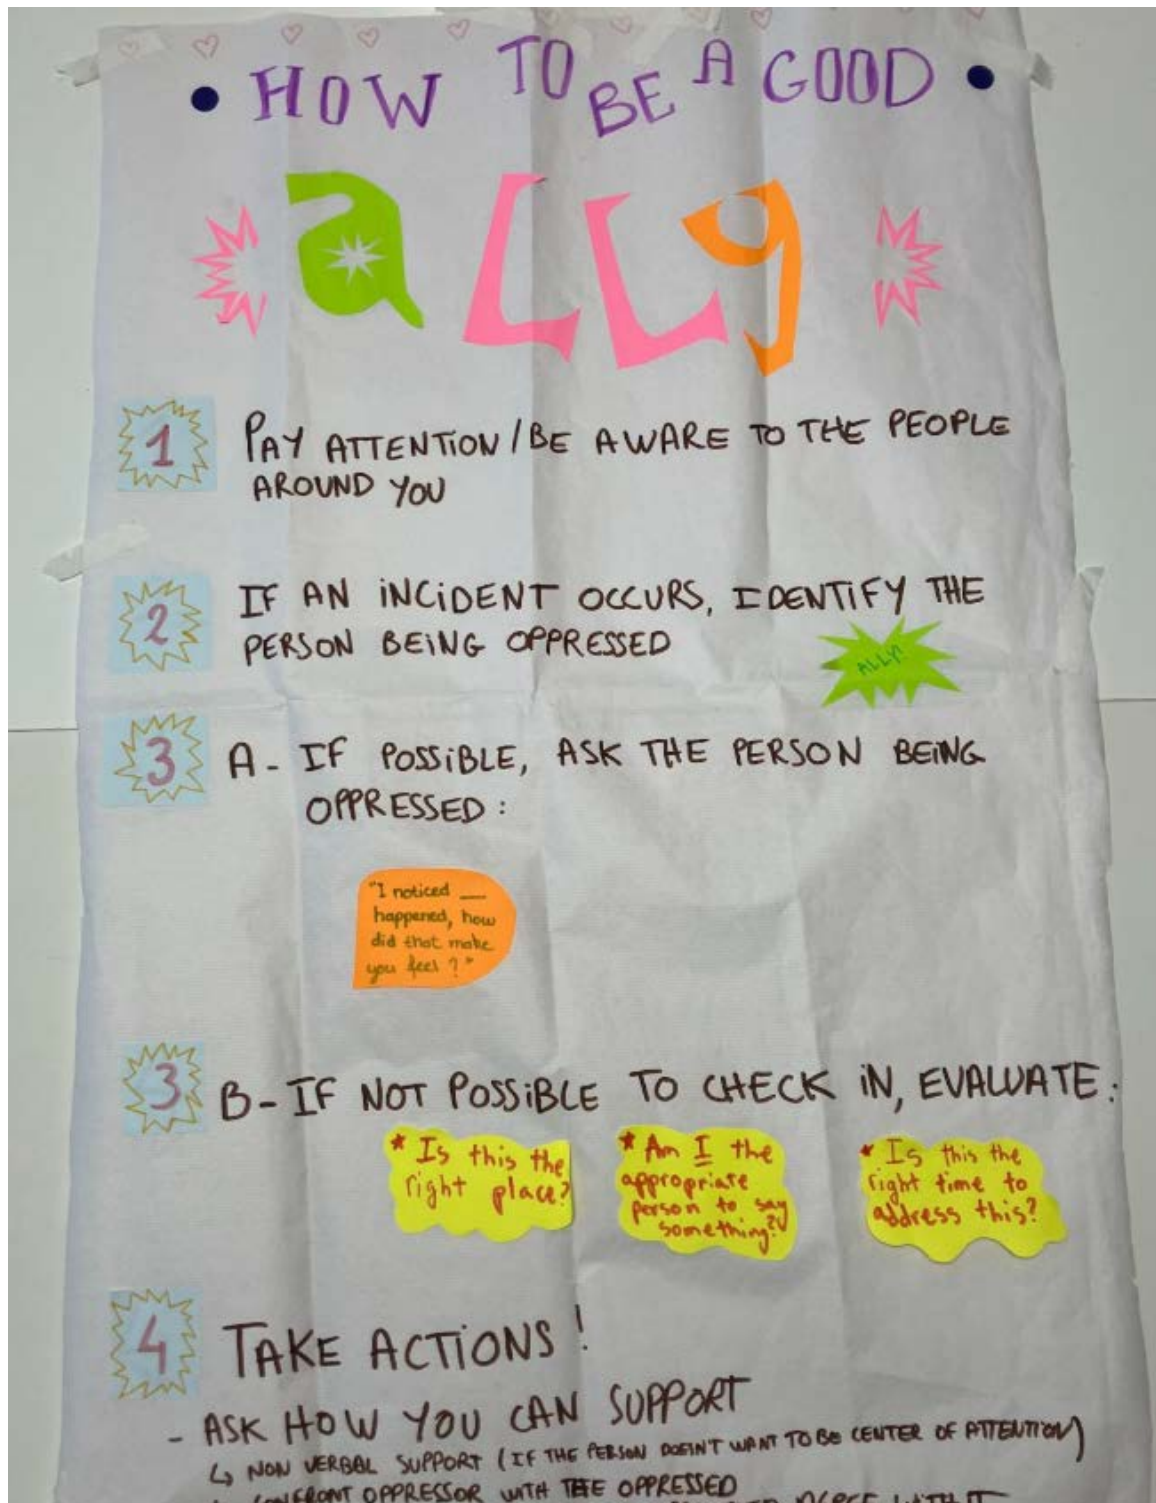 • HOW TO BE A GOOD •
aLLy
1 PAY ATTENTION / BE AWARE TO THE PEOPLE
AROUND YOU
2 IF AN INCIDENT OCCURS, IDENTIFY THE
PERSON BEING OPPRESSED
ALLY!
3 A - IF POSSIBLE, ASK THE PERSON BEING
OPPRESSED :
"I noticed __
happened, how
did that make
you feel ?"
3 B - IF NOT POSSIBLE TO CHECK IN, EVALUATE :
* Is this the
right place?
* Am I the
appropriate
person to say
something?
* Is this the
right time to
address this?
4 TAKE ACTIONS !
- ASK HOW YOU CAN SUPPORT
↳ NON VERBAL SUPPORT (IF THE PERSON DOESN'T WANT TO BE CENTER OF ATTENTION)
CONFRONT OPPRESSOR WITH THE OPPRESSED
AGREE WITH IT